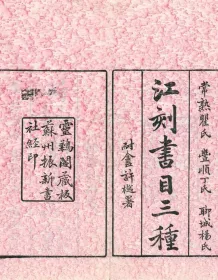 常熟瞿氏 豐順丁氏 聊城楊氏
江刻書目三種
耐龕許樾署
靈鶼閣藏板
蘇州振新書
社經印